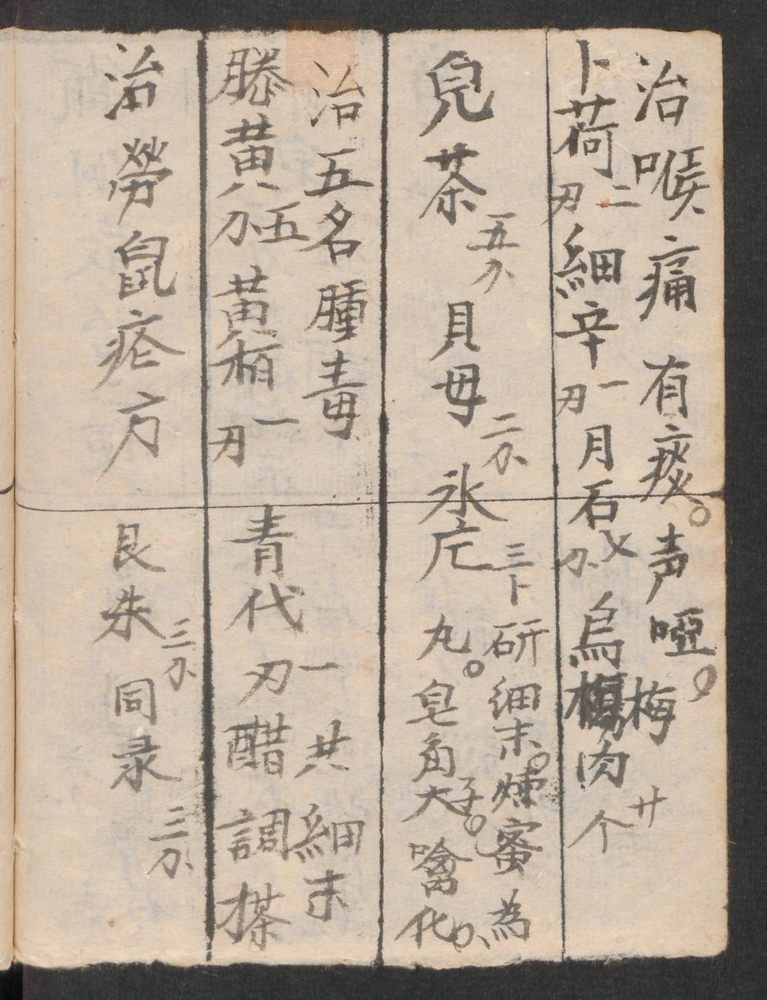 治喉痛有痰。声啞。
卜荷二刃細辛一刃月石㐅分烏梅肉廿个
兒茶五分貝母二分氷片三卜研細末。煉蜜為
丸。皂角子大。噙化
治五名腫毒
騰黄五分黄栢一刃青代一刃共細末
醋調搽
治勞鼠瘡方艮朱三分同录三分